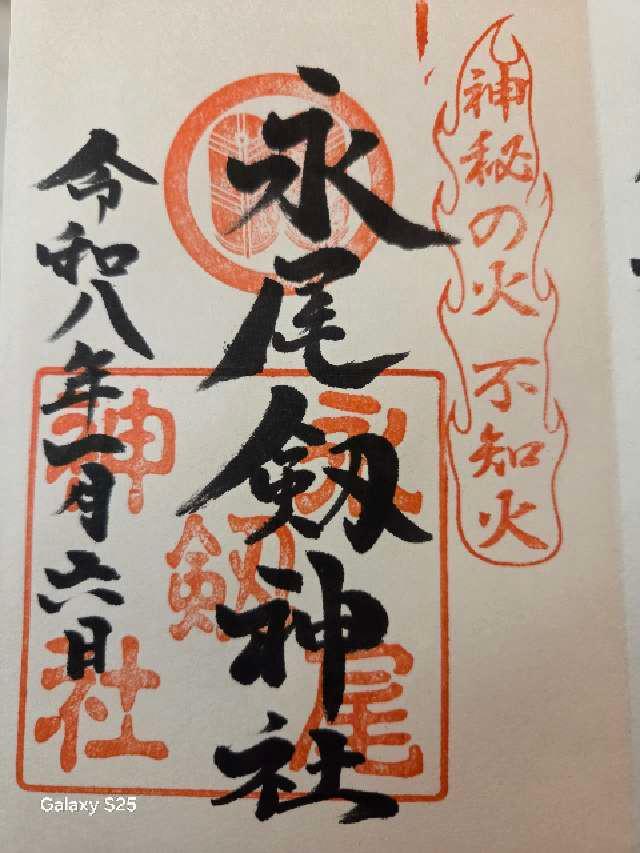 神秘の火 不知火
永尾剱神社
令和八年一月六日
永尾
剱
神社
Galaxy S25